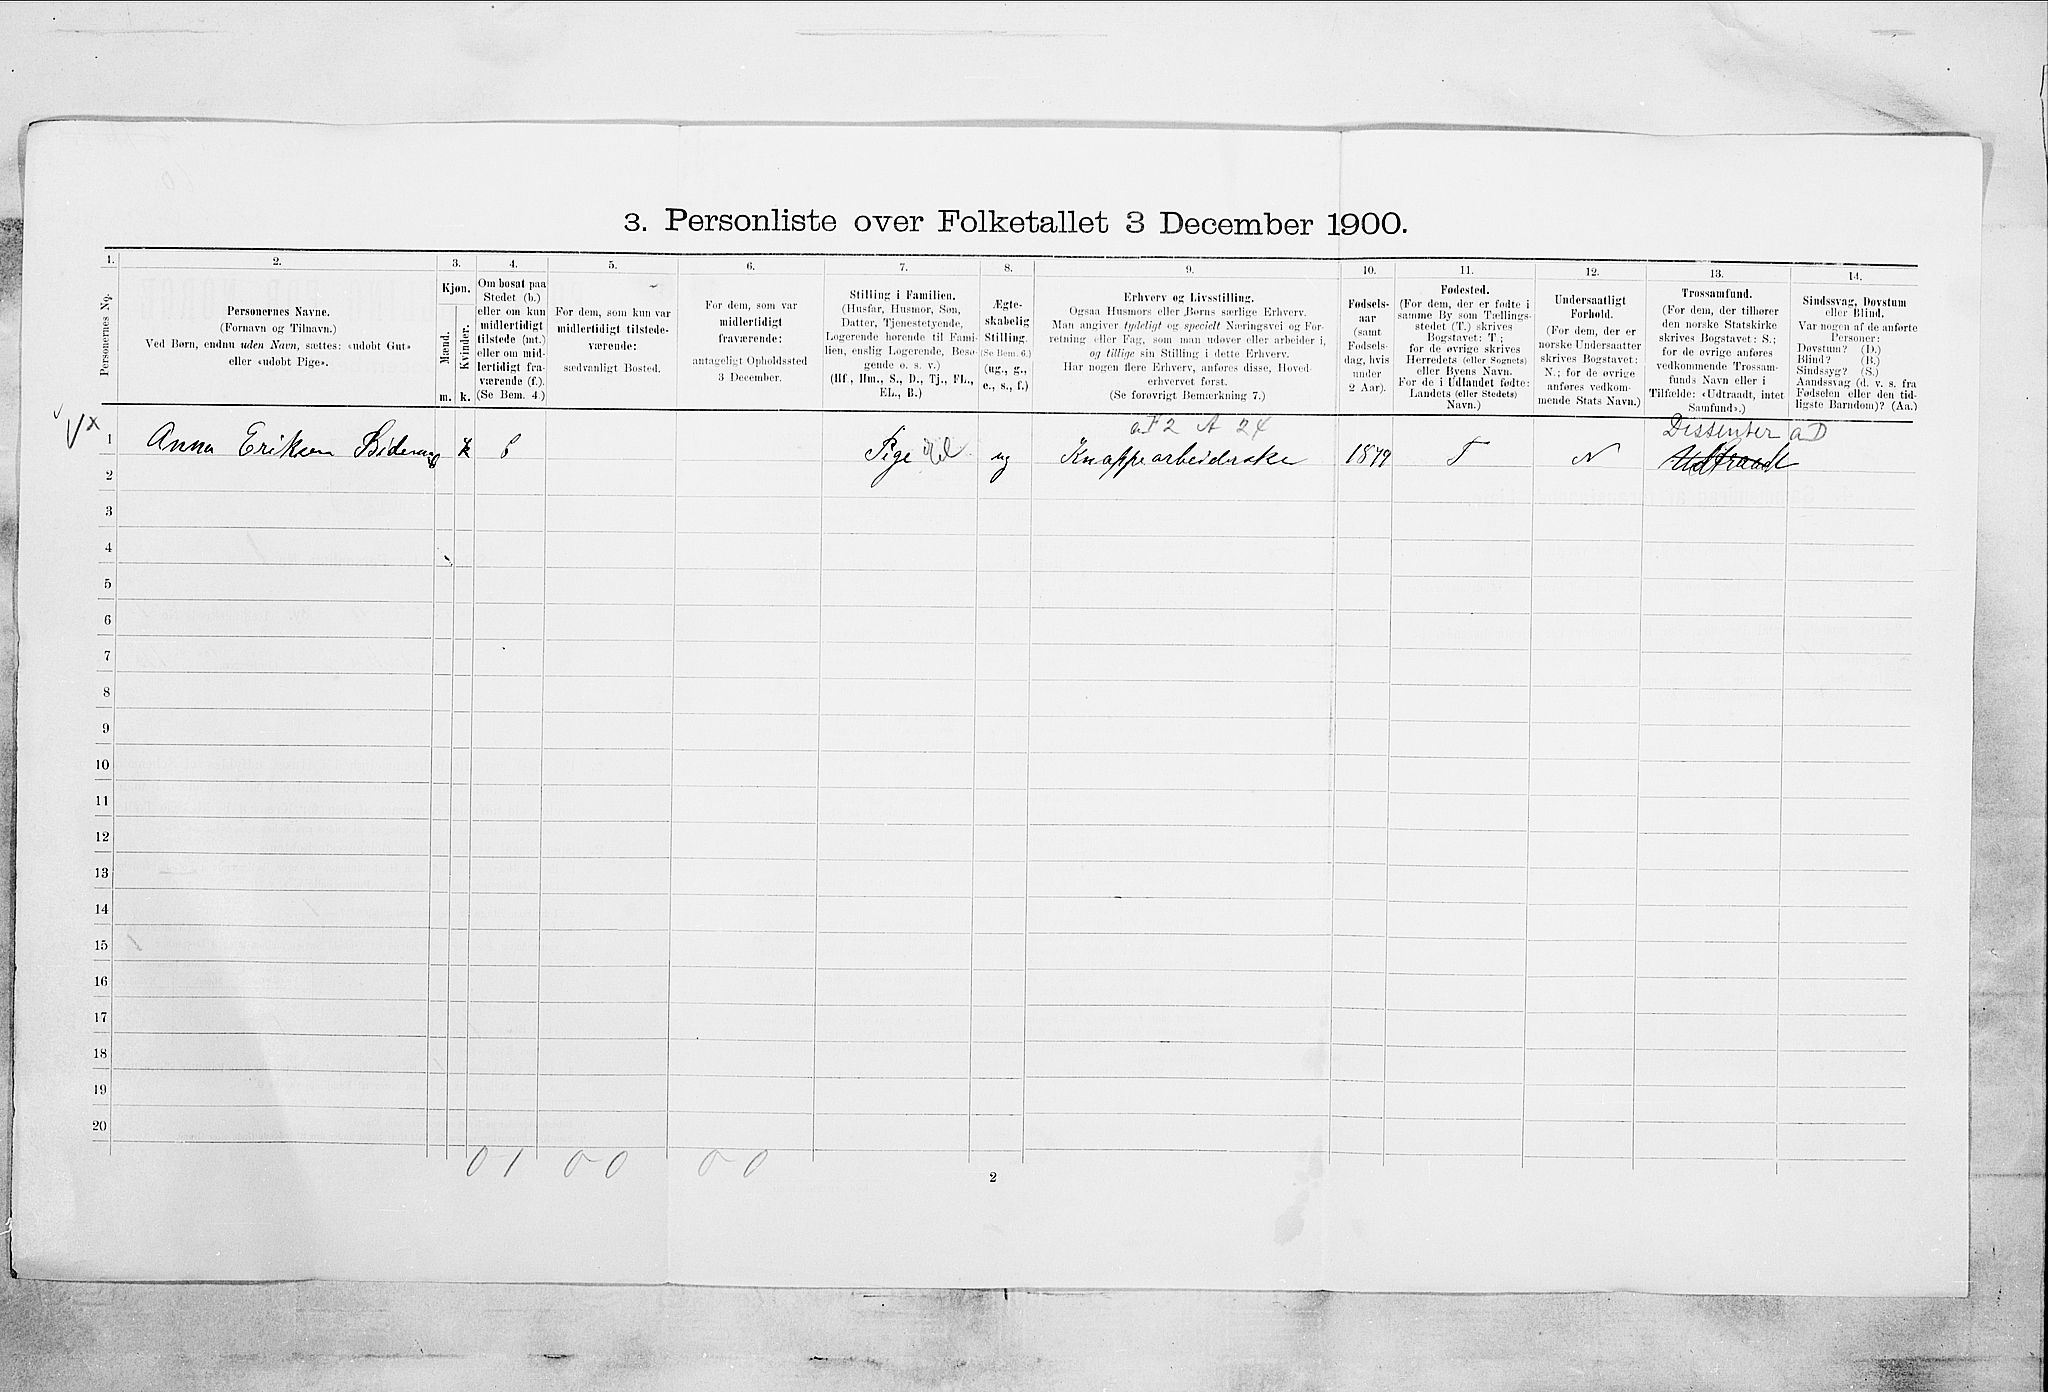 3. Personliste over Folketallet 3 December 1900.
1. 2. 3. 4. 5. 6. 7. 8. 9. 10. 11. 12. 13. 14.
Personernes No.
Personernes Navne.
(Fornavn og Tilnavn.)
Ved Børn, endnu uden Navn, sættes: «udøbt Gut»
eller «udøbt Pige».
Kjøn.
Mænd.
Kvinder.
m. k.
Om bosat paa
Stedet (b.)
eller om kun
midlertidigt
tilstede (mt.)
eller om mid-
lertidigt fra-
værende (f.).
(Se Bem. 4.)
For dem, som kun var
midlertidigt tilstede-
værende:
sædvanligt Bosted.
For dem, som var
midlertidigt
fraværende:
antageligt Opholdssted
3 December.
Stilling i Familien.
(Husfar, Husmor, Søn,
Datter, Tjenestetyende,
Logerende hørende til Fami-
lien, enslig Logerende, Besø-
gende o. s. v.)
(Hf., Hm., S., D., Tj., FL.,
EL., B.)
Ægte-
skabelig
Stilling.
(Se Bem. 6.)
(ug., g.,
e., s., f.)
Erhverv og Livsstilling.
Ogsaa Husmors eller Børns særlige Erhverv.
Man angiver tydeligt og specielt Næringsvei og For-
retning eller Fag, som man udøver eller arbeider i,
og tillige sin Stilling i dette Erhverv.
Har nogen flere Erhverv, anføres disse, Hoved-
erhvervet først.
(Se forøvrigt Bemærkning 7.)
Fødsels-
aar
(samt
Fødsels-
dag, hvis
under
2 Aar).
Fødested.
(For dem, der er fødte i
samme By som Tællings-
stedet (T.) skrives
Bogstavet: T;
for de øvrige skrives
Herredets (eller Sognets)
eller Byens Navn.
For de i Udlandet fødte:
Landets (eller Stedets)
Navn.)
Undersaatligt
Forhold.
(For dem, der er
norske Undersaatter
skrives Bogstavet:
N.; for de øvrige
anføres vedkom-
mende Stats Navn.)
Trossamfund.
(For dem, der tilhører
den norske Statskirke
skrives Bogstavet: S.;
for de øvrige anføres
vedkommende Trossam-
funds Navn eller i
Tilfælde: «Udtraadt, intet
Samfund».)
Sindssvag, Døvstum
eller Blind.
Var nogen af de anførte
Personer:
Døvstum? (D.)
Blind? (B.)
Sindssyg? (S.)
Aandssvag (d. v. s. fra
Fødselen eller den tid-
ligste Barndom)? (Aa.)
aF2 A 24 Dissenter aD
1 Anna Eriksen k b Pige el ug Knappearbeiderske 1879 T N Udtraadt
2
3
4
5
6
7
8
9
10
11
12
13
14
15
16
17
18
19
20
0 1 0 0 0 0
2